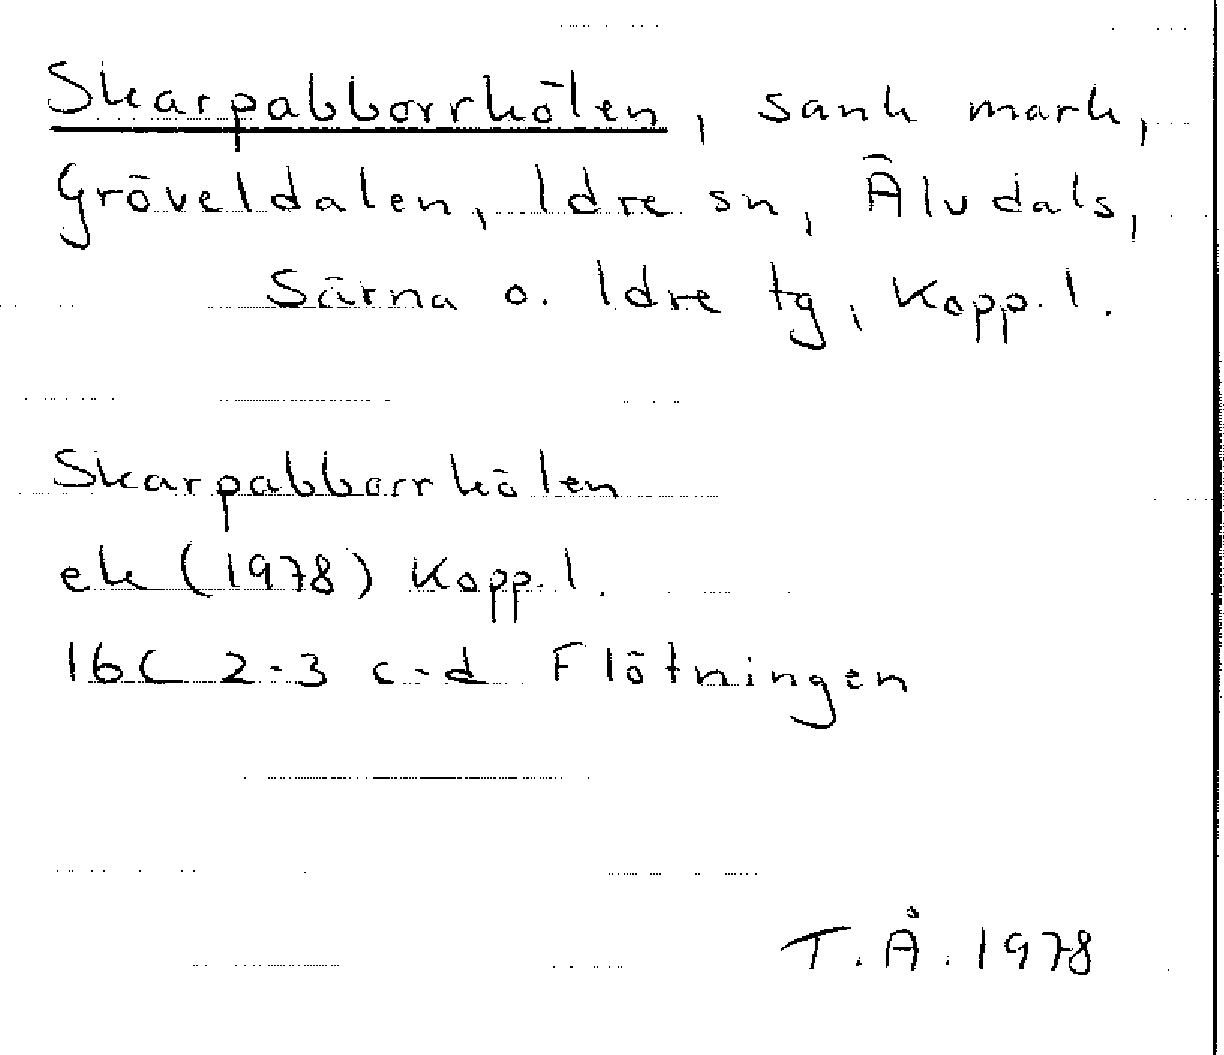 Skarpabborrkölen, sank mark,
Gröveldalen, Idre sn, Älvdals,
Särna o. Idre tg, Kopp. l.
Skarpabborrkölen
ek (1978) Kopp. l.
16C 2-3 c-d Flötningen
T.Å. 1978